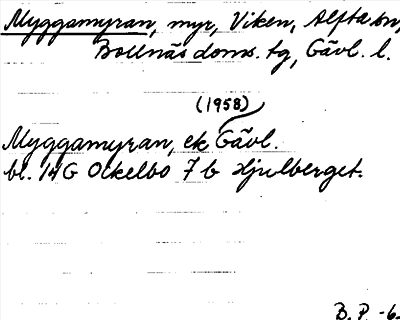 Myggamyran, myr, Viken, Alfta sn,
Bollnäs doms. tg, Gävl. l.
(1958)
Myggamyran, ek Gävl.
bl. 14G Ockelbo 7 b Hjulberget.
B. P. -6